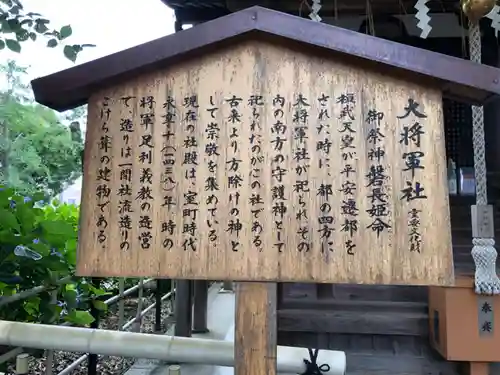 大将軍社 重要文化財
御祭神 磐長姫命
桓武天皇が平安遷都を
された時に、都の四方に
大将軍社が祀られその
内の南方の守護神として
祀られたのがこの社である。
古来より方除けの神と
して崇敬を集めている。
現在の社殿は、室町時代
永享十(一四三八)年時の
将軍足利義教の造営
で、造りは一間社流造りの
こけら葺の建物である。